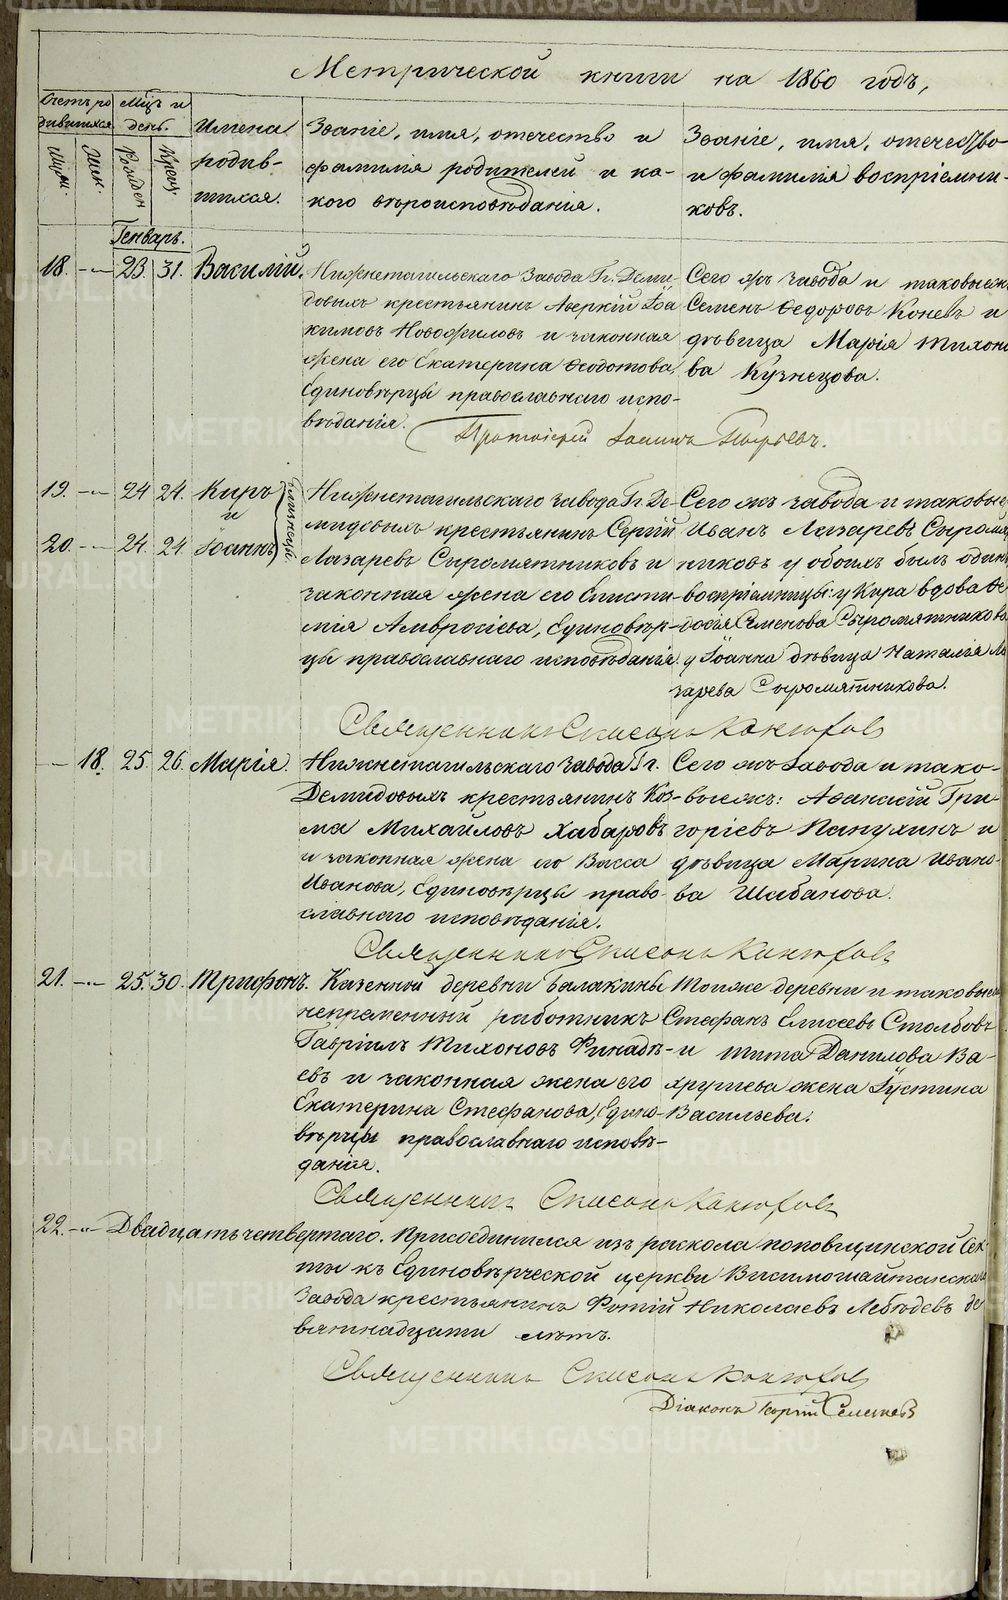 Метрической книги на 1860 годъ,
Счетъ ро
дившихся
Мцъ и
день.
Имена
родив-
шихся.
Званіе, имя, отечество и
фамилія родителей и ка-
кого вѣроисповѣданія.
Званіе, имя, отечество
и фамилія воспріемни-
ковъ.
Муж.
Жен.
Рожден
Крещ.
Генварь.
18. -"- 23. 31. Василій.
Нижнетагильскаго Завода Гг. Деми-
довыхъ крестьянинъ Аверкій Іоа
кимовъ Новофиловъ и законная
жена его Екатерина Ѳеодотова,
Единовѣрцы православнаго испо-
вѣданія.
Сего жъ завода и таковыежъ
Семенъ Ѳедоровъ Коневъ и
дѣвица Марія Тихоно
ва Кузнецова.
Протоіерей Іоаннъ
19. -"- 24 24. Киръ
и
20. -"- 24. 24. Іоаннъ
близнецы.
Нижнетагильскаго завода Гг. Де-
мидовыхъ крестьянинъ Сергій
Лазаревъ Сыромятниковъ и
законная жена его Еписти-
мія Амвросіева, Единовѣр-
цы православнаго исповѣданія.
Сего жъ завода и таковые
Иванъ Лазаревъ Сыромят
никовъ у обоихъ былъ одинъ
воспріемницы: у Кира вдова Ѳе
досія Семенова Сыромятникова
у Іоанна дѣвица Наталія Ла
зарева Сыромятникова.
Священникъ
-"- 18. 25. 26. Марія.
Нижнетагильскаго завода Гг.
Демидовыхъ крестьянинъ Коз-
ма Михайловъ Хабаровъ
и законная жена его Васса
Иванова, Единовѣрцы право-
славнаго исповѣданія.
Сего жъ завода и тако-
выежъ: Аѳанасій Гри
горіевъ Папулинъ и
дѣвица Марина Ивано-
ва Шабанова.
Священникъ
21. -"- 25. 30. Трифонъ.
Казенной деревни Балакины
непременный работникъ
Гавріилъ Тихоновъ Финадѣ-
евъ и законная жена его
Екатерина Стефанова, Едино-
вѣрцы православнаго исповѣ-
данія.
Тоижже деревни и таковые
Стефанъ Елисеевъ Столбовъ
и Тита Данилова Ва-
хрушева жена Іустина
Васильева.
Священникъ
22. -"- Двадцать четвертаго. Присоединился изъ раскола поповщинской Сек-
ты къ Единовѣрческой церкви Висимошайтанскаго
завода крестьянинъ Фотій Николаевъ Лебѣдевъ де
вятнадцати лѣтъ.
Священникъ
Діаконъ Георгій
METRIKI.GASO-URAL.RU